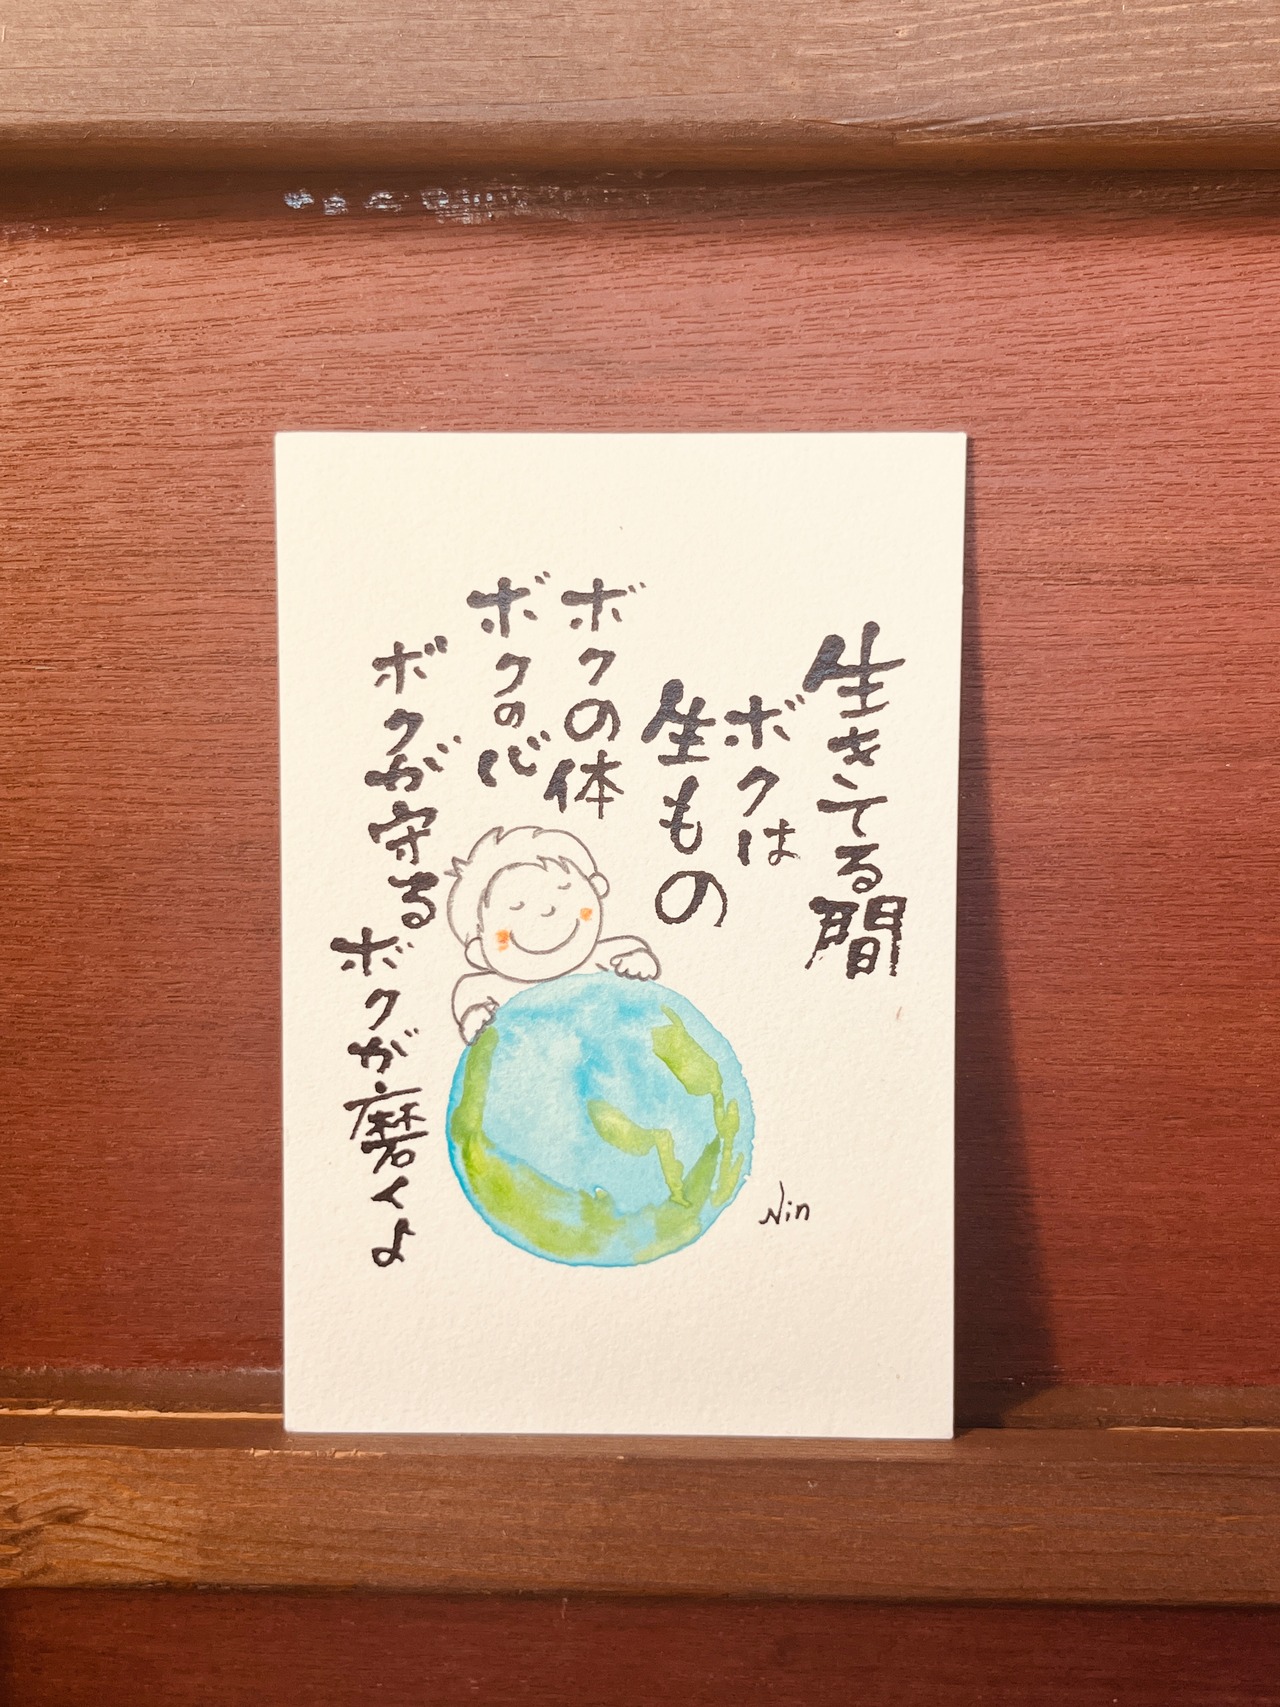 生きてる間
ボクは
生もの
ボクの体
ボクの心
ボクが守る
ボクが磨くよ
Nin